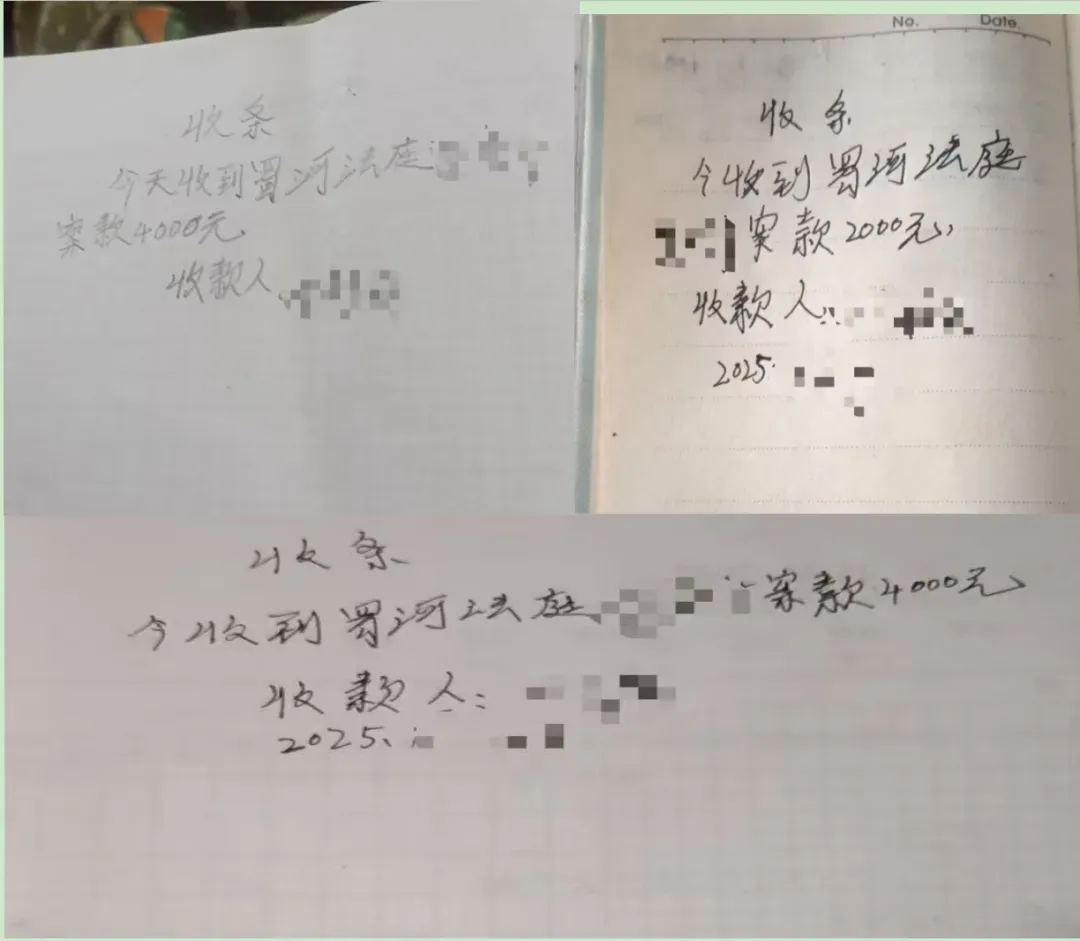 收条
今天收到蜀河法庭
案款4000元
收款人
No. Date.
收条
今收到蜀河法庭
案款2000元,
收款人:
2025.
收条
今收到蜀河法庭 案款4000元、
收款人:
2025、